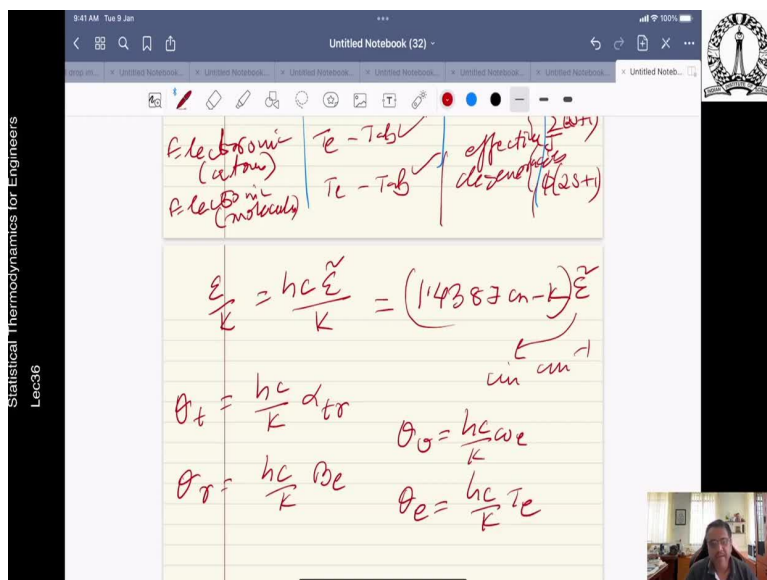 9:41 AM Tue 9 Jan
100%
Untitled Notebook (32)
drop im...
× Untitled Notebook...
× Untitled Notebook...
× Untitled Notebook...
× Untitled Notebook...
× Untitled Notebook...
× Untitled Notebook...
× Untitled Noteb...
Statistical Thermodynamics for Engineers
Lec36
Electronic (atom) Te - Tab effective degeneracy (2J+1)
Electronic (molecule) Te - Tab φ(2S+1)
ε/k = hcε̃/k = (1.4387 cm-K) ε̃
in cm⁻¹
θt = hc/k αtr
θv = hc/k ωe
θr = hc/k Be
θe = hc/k Te